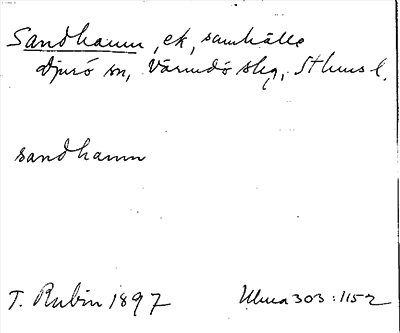 Sandhamn, ek, samhälle
Djurö sn, Värmdö skg, Sthms l.
sandhamn
T. Rubin 1897
Uma 303:1152